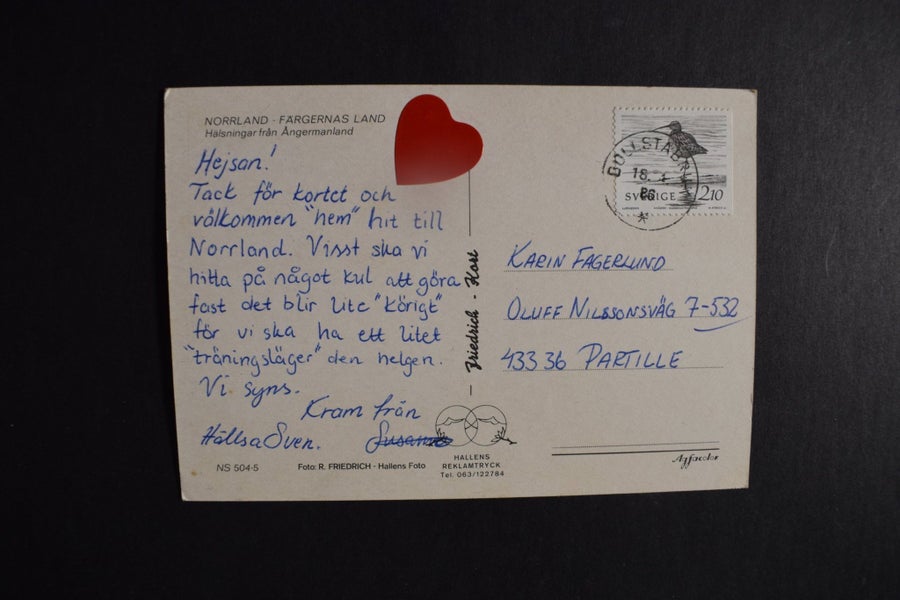 NORRLAND - FÄRGERNAS LAND
Hälsningar från Ångermanland
Hejsan!
Tack för kortet och
välkommen "hem" hit till
Norrland. Visst ska vi
hitta på något kul att göra
fast det blir lite "körigt"
för vi ska ha ett litet
"träningsläger" den helgen.
Vi syns.
Kram från
Hälsa Sven. Susanne
NS 504-5
Foto: R. FRIEDRICH - Hallens Foto
Friedrich - Kort
HALLENS
REKLAMTRYCK
Tel. 063/122784
SVERIGE 210
KARIN FAGERLUND
OLUFF NILSSONSVÄG 7-532
433 36 PARTILLE
Agfacolor